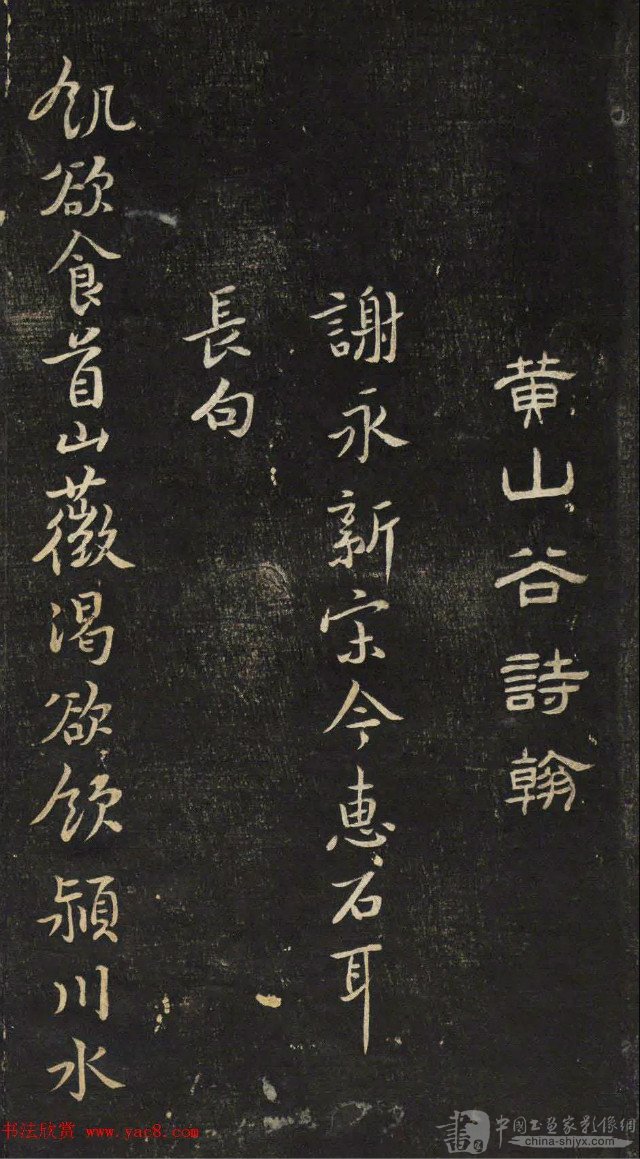 黄山谷詩翰
謝永新宋令惠石耳
長句
飢欲食首山薇渴欲飲潁川水
书法欣赏 www.yac8.com
書 中國书画家影像網
china-shjyx.com